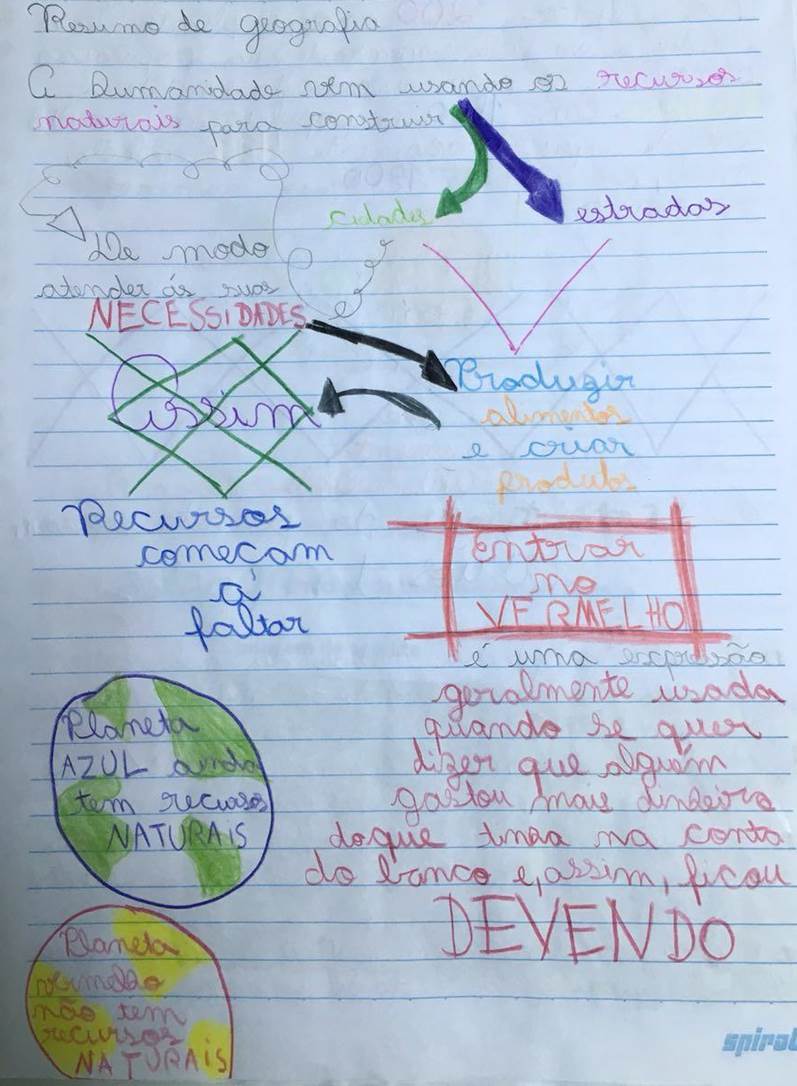 Resumo de geografia
A humanidade vem usando os recursos
naturais para construir
cidades
estradas
De modo
atender ás suas
NECESSIDADES
Produzir
alimentos
e criar
produtos
Assim
Recursos
começam
á
faltar
Entrar
no
VERMELHO
é uma expressão
geralmente usada
quando se quer
dizer que alguém
gastou mais dinheiro
doque tinha na conta
do banco e, assim, ficou
DEVENDO
Planeta
AZUL ainda
tem recursos
NATURAIS
Planeta
vermelho
não tem
recursos
NATURAIS
spiral